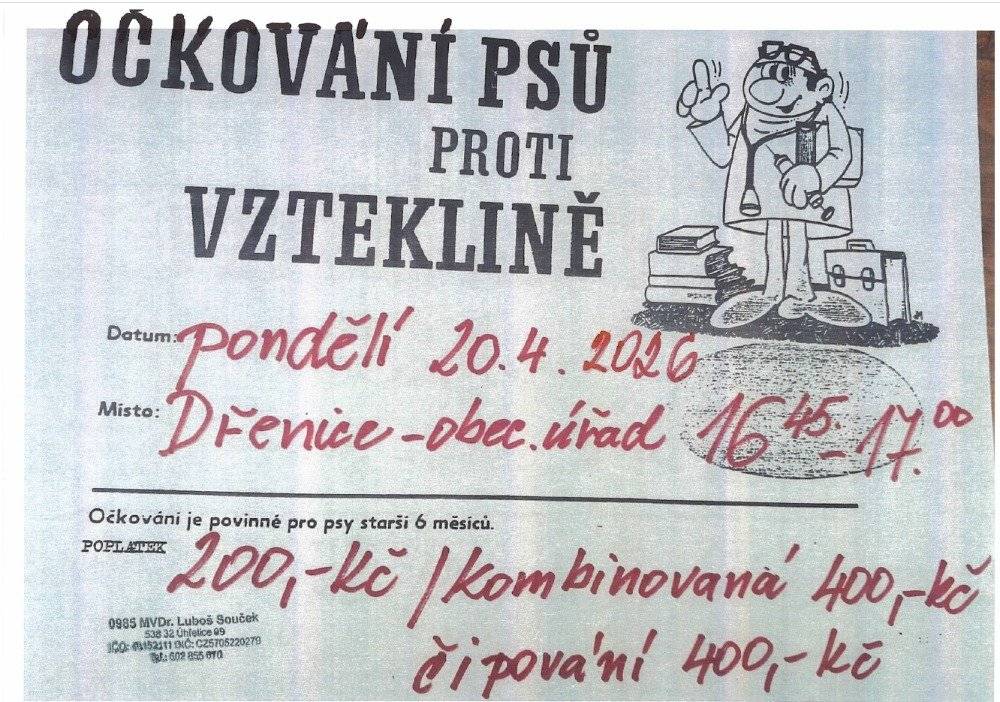 OČKOVÁNÍ PSŮ
PROTI
VZTEKLINĚ
Datum: pondělí 20.4. 2026
Místo: Dřenice - obec. úřad 16 45. - 17. 00
Očkování je povinné pro psy starší 6 měsíců.
POPLATEK 200,- Kč / kombinovaná 400,- Kč
čipování 400,- Kč
0985 MVDr. Luboš Souček
538 32 Úhřetice 99
IČO: DIČ: CZ5705220279
Tel.: 602 855 070